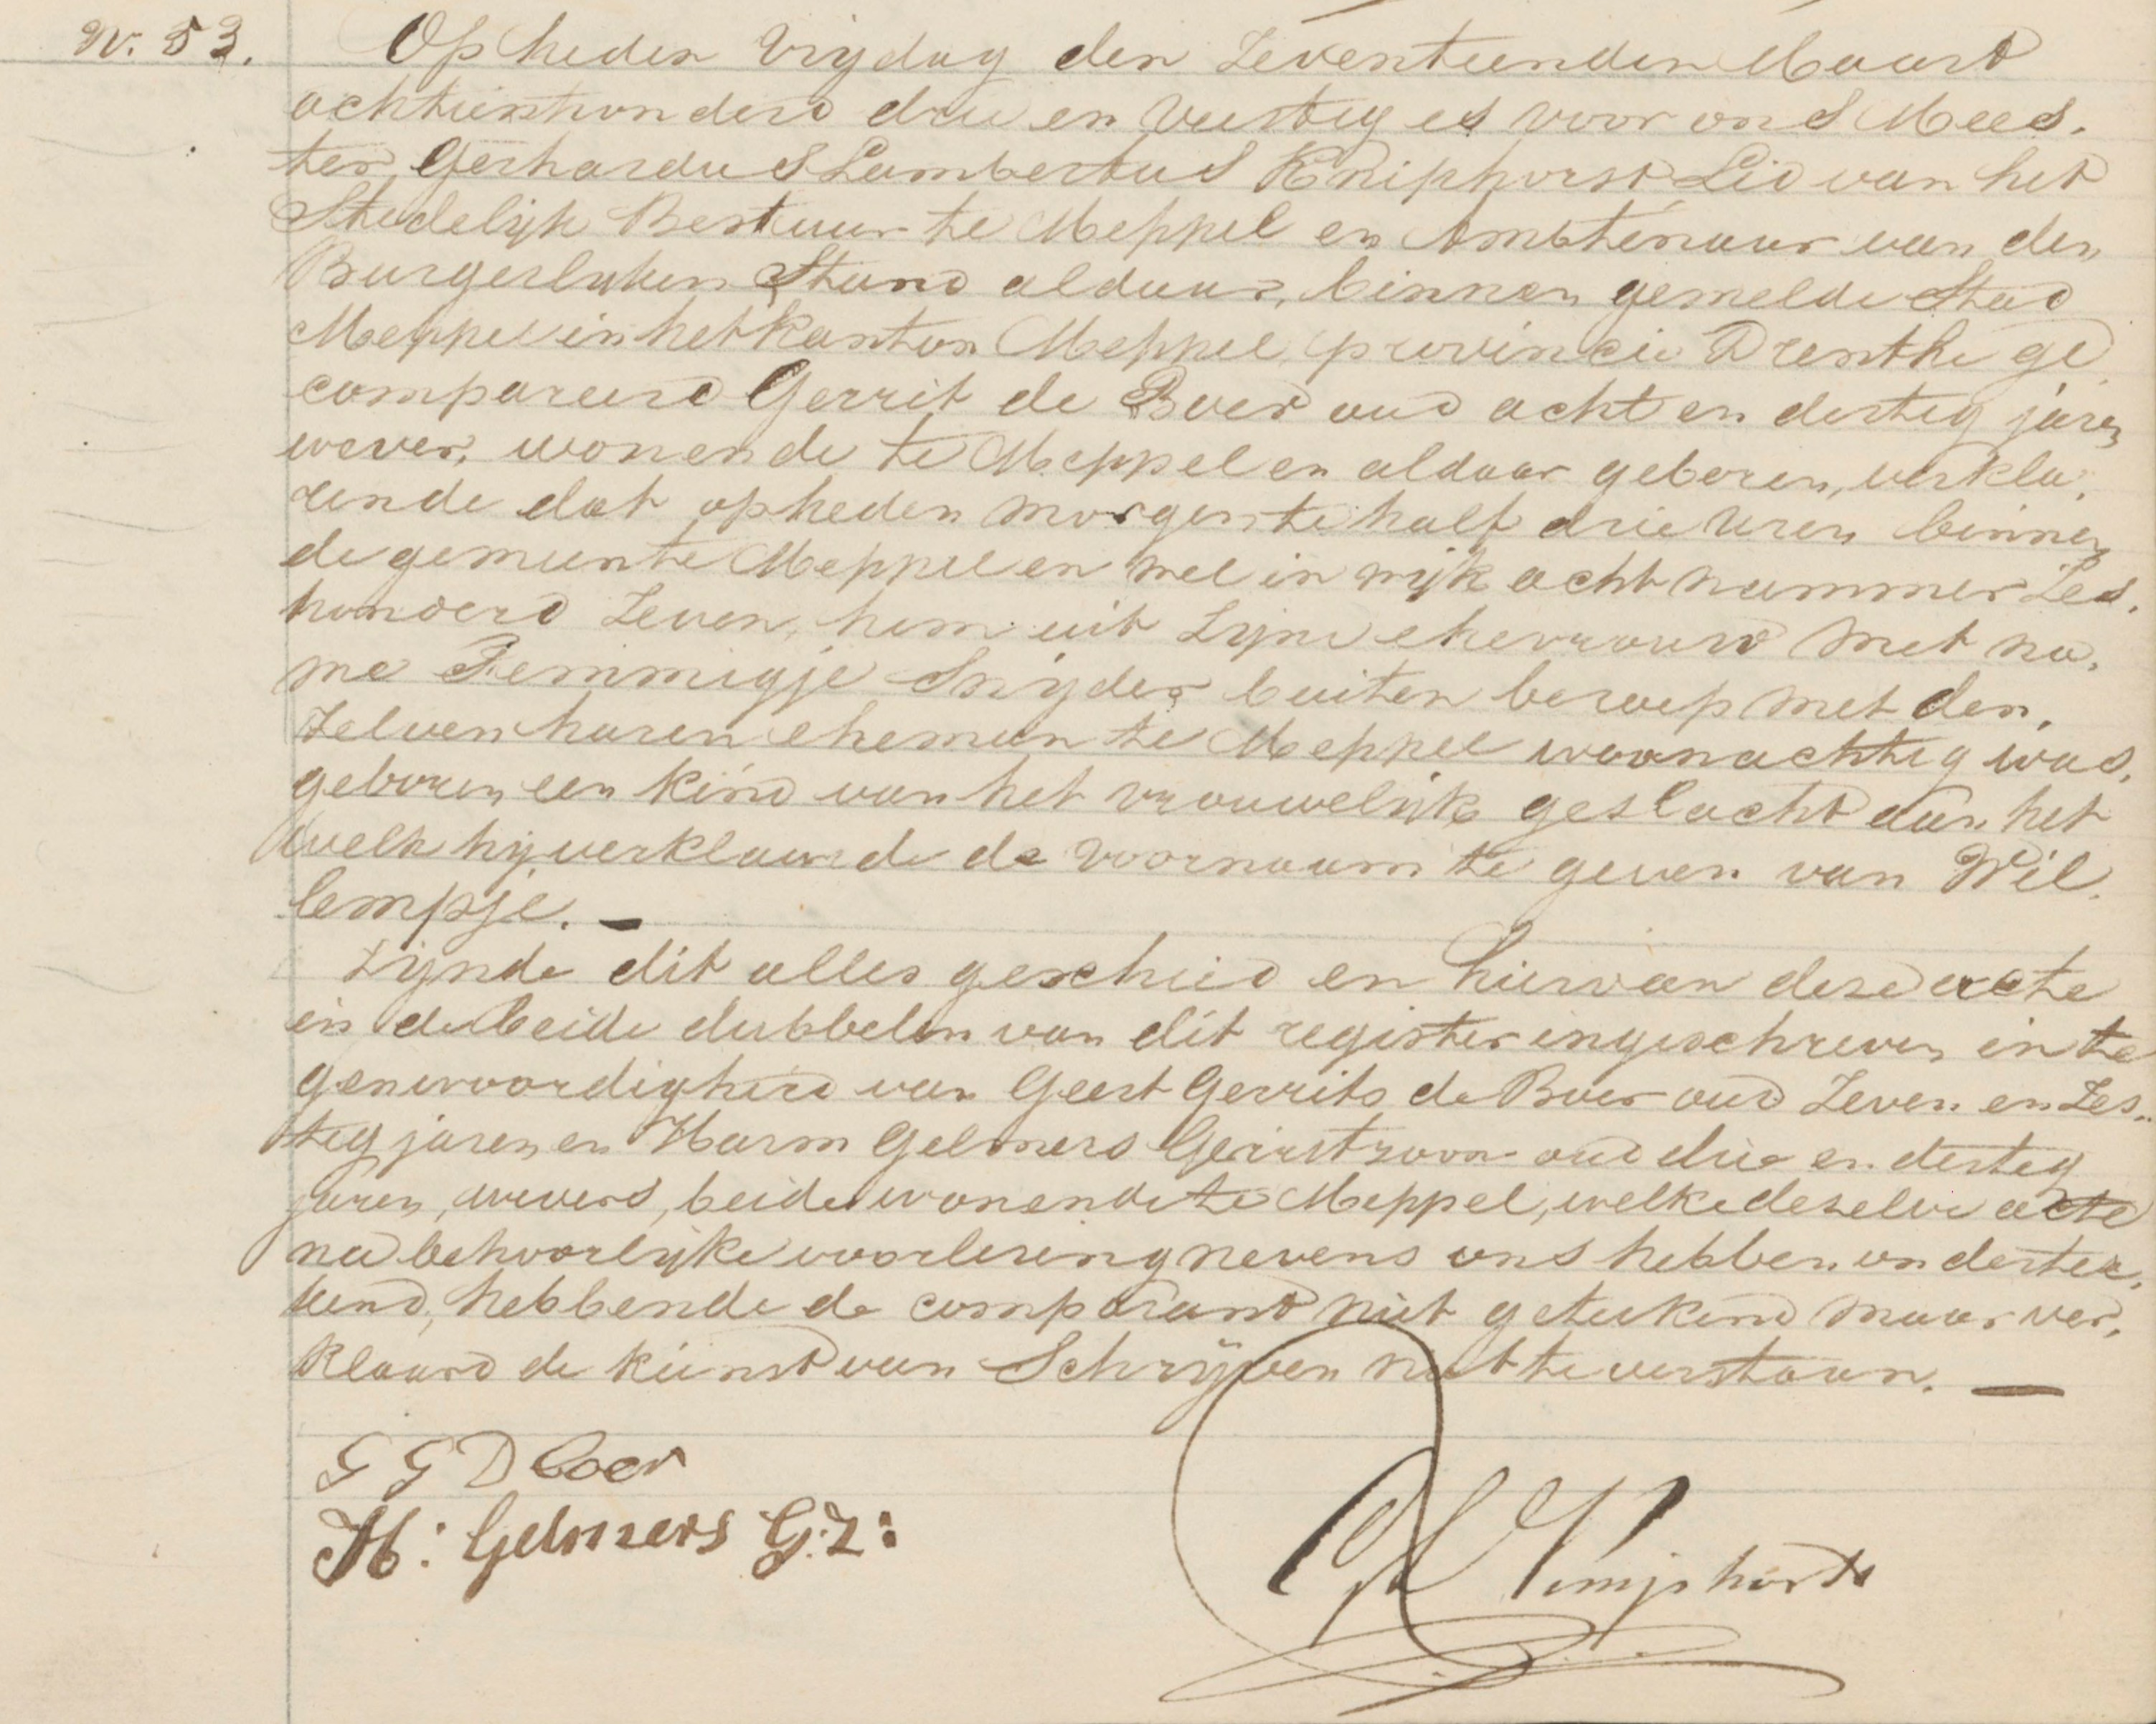 N. 53.
Op heden Vrijdag den Zeventienden Maart
achttienhonderd drie en veertig is voor ons Mees.
ter Gerhardus Lambertus Kniphorst Lid van het
Stedelijk Bestuur te Meppel en Ambtenaar van den
Burgerlyken Stand aldaar, binnen gemelde Stad
Meppel in het kanton Meppel, provincie Drenthe ge
compareerd Gerrit de Boer oud acht en dertig jaren
wever, wonende te Meppel en aldaar geboren, verkla.
rende dat op heden morgen te half drie uren binnen
de gemeente Meppel en wel in wijk acht nummer Zes.
honderd Zeven, hem uit Zyne ehevrouw met na.
me Femmigje Snyder buiten beroep met den.
Zelven haren eheman te Meppel woonachtig was,
geboren een kind van het vrouwelijk geslacht aan het
welk hij verklaarde de voornaam te geven van Wil.
lempje. —
Zijnde dit alles geschied en hiervan deze acte
in de beide dubbelen van dit register ingeschreven in te
genwoordigheid van Geert Gerrits de Boer oud Zeven en Zes..
tig jaren en Harm Gelmers Geertzoon oud drie en dertig
jaren, wevers, beide wonende te Meppel, welke dezelve acte
na behoorlijke voorlezing nevens ons hebben ondertee.
kend, hebbende de comparant niet geteekend maar ver.
klaard de kunst van Schrijven niet te verstaan. —
G G D boer
H: Gelmers G.Z:
GL Kniphorst